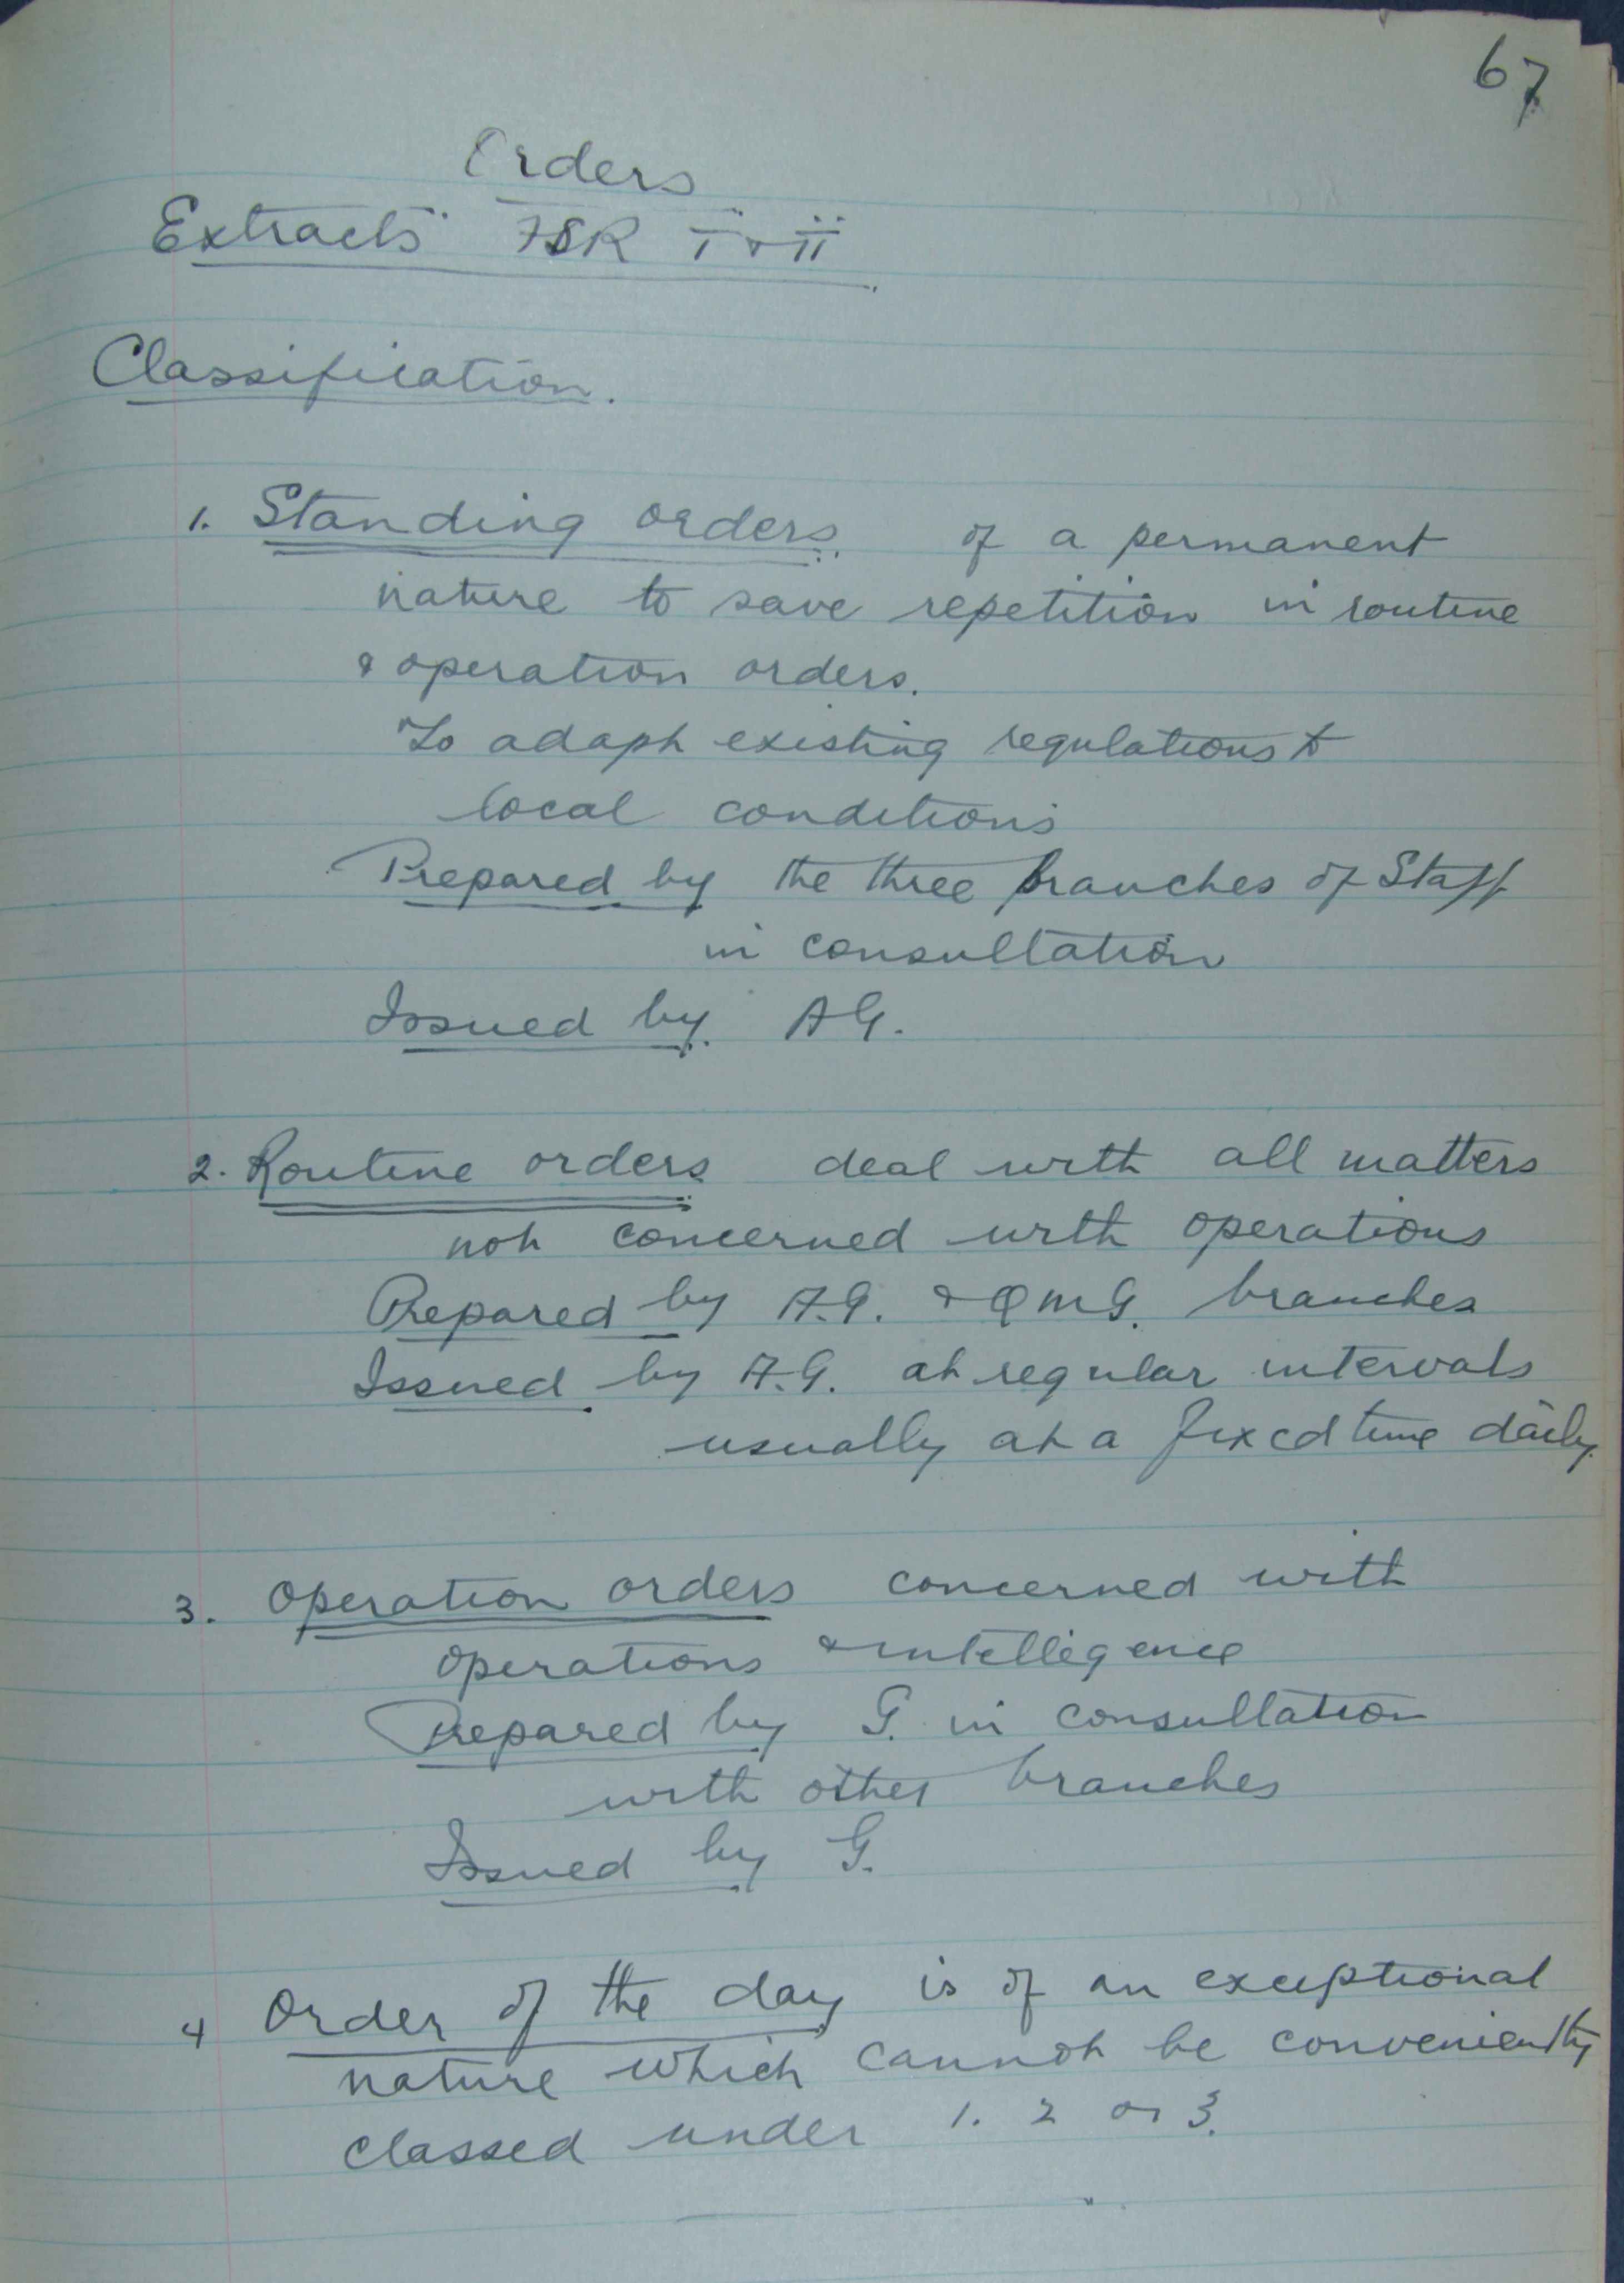 67
Orders
Extracts FSR I & II
Classification.
1. Standing orders. of a permanent
nature to save repetition in routine
& operation orders.
To adapt existing regulations to
local conditions
Prepared by the three branches of Staff
in consultation
Issued by AG.
2. Routine orders deal with all matters
not concerned with operations
Prepared by A.G. & QMG. branches
Issued by A.G. at regular intervals
usually at a fixed time daily.
3. Operation orders concerned with
operations & intelligence
Prepared by G. in consultation
with other branches
Issued by G.
4 Order of the day is of an exceptional
nature which cannot be conveniently
classed under 1. 2 or 3.